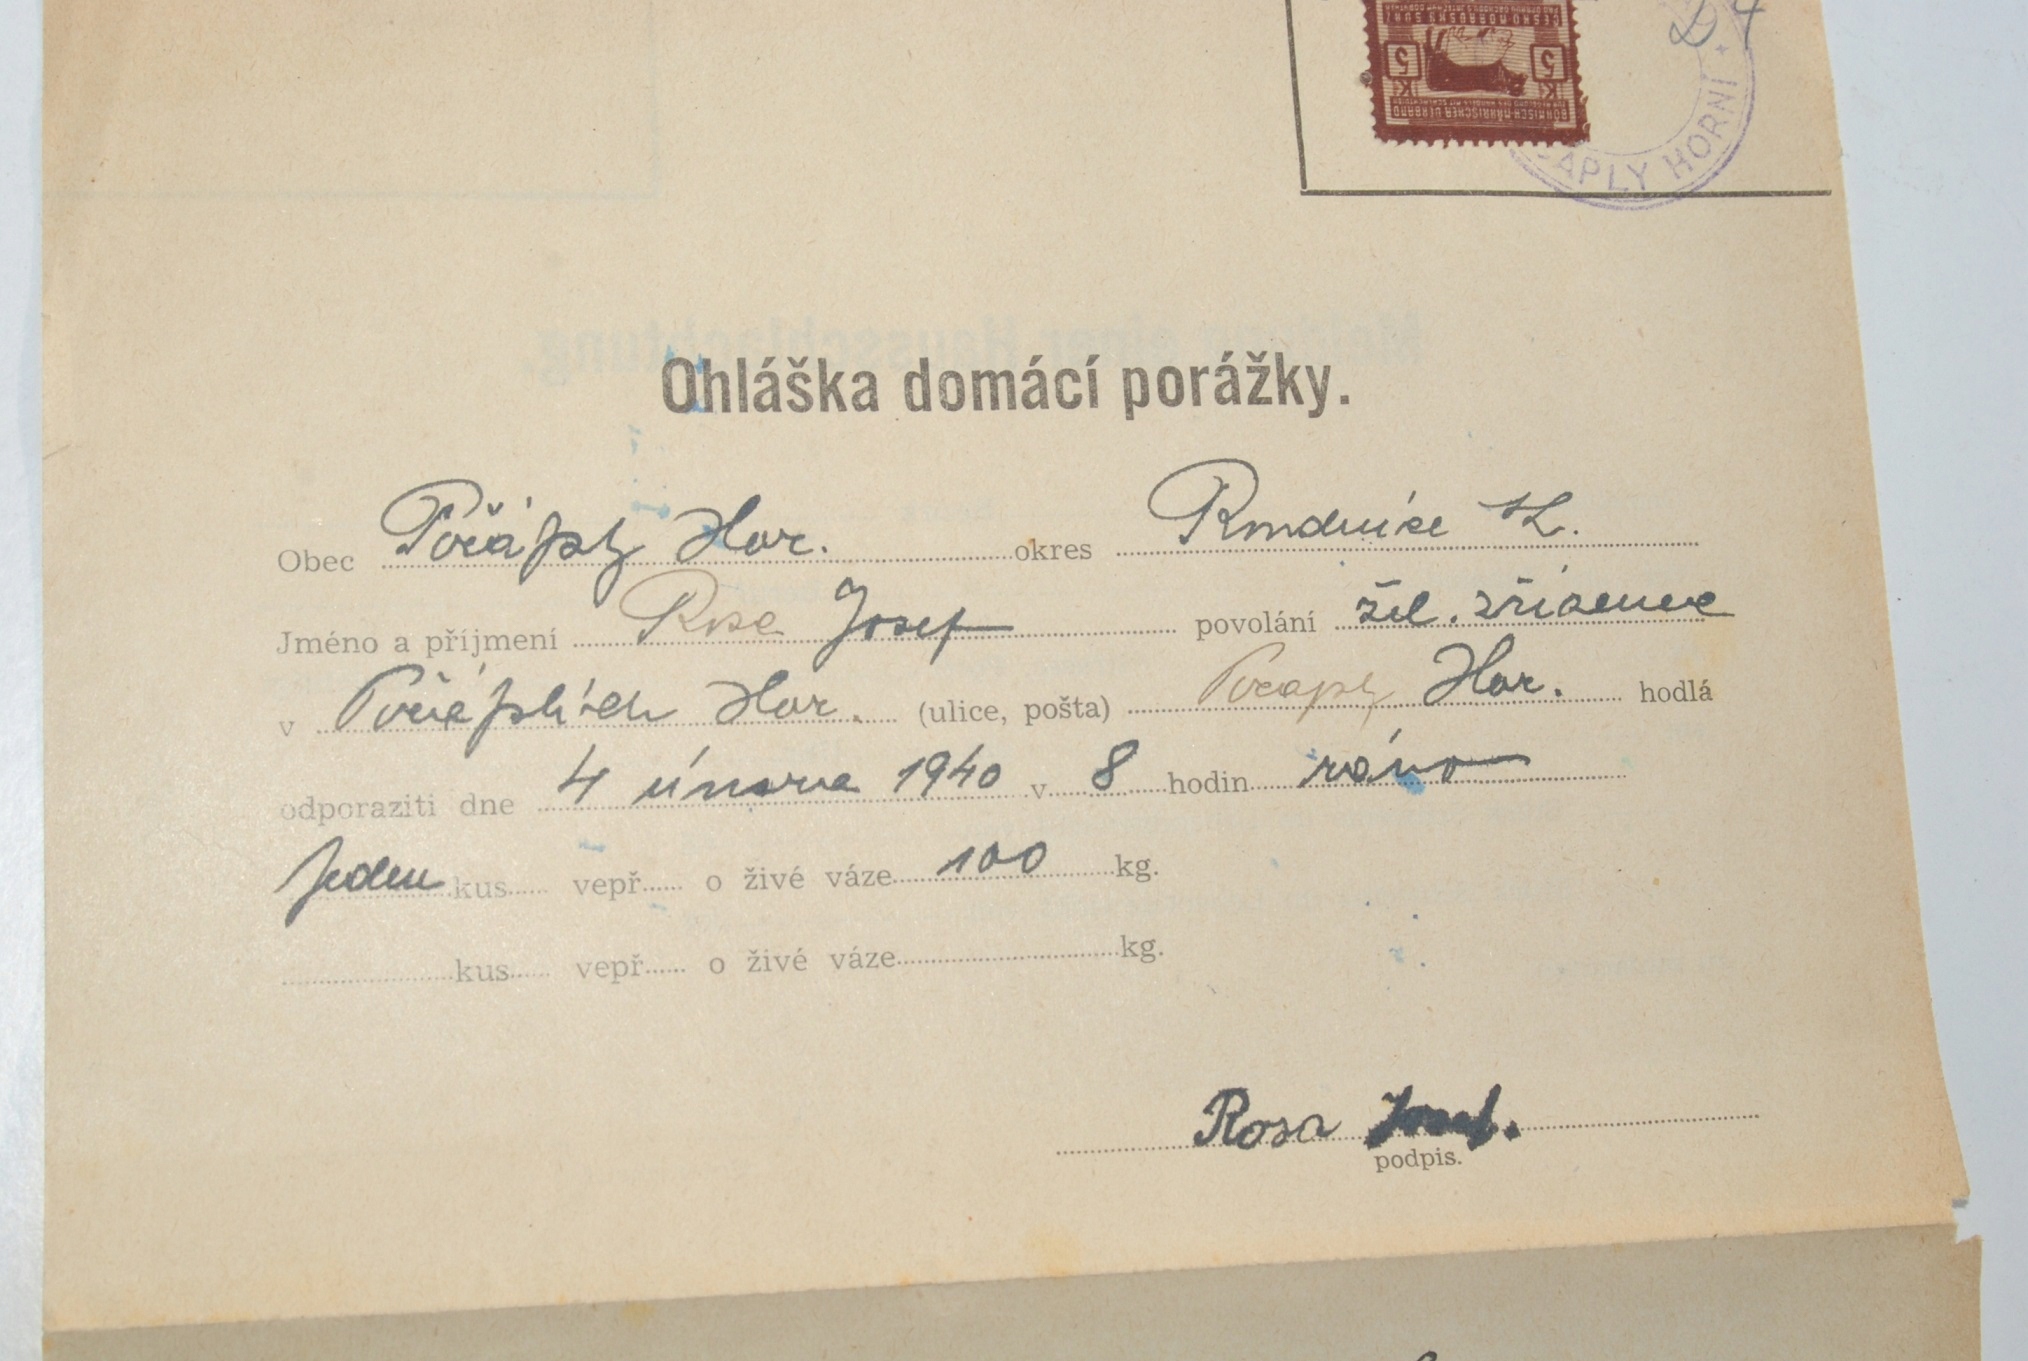 ČESKO MORAVSKÝ SVAZ
5 K 5 K
BÖHMISCH-MÄHRISCHER VERBAND
APLY HORNÍ
Ohláška domácí porážky.
Obec Počáply Hor. okres Roudnice n/L.
Jméno a příjmení Rosa Josef povolání žel. zřízenec
v Počáplích Hor. (ulice, pošta) Počaply Hor. hodlá
odporaziti dne 4 února 1940 v 8 hodin ráno
jeden kus vepř o živé váze 100 kg.
kus vepř o živé váze kg.
Rosa Josef.
podpis.